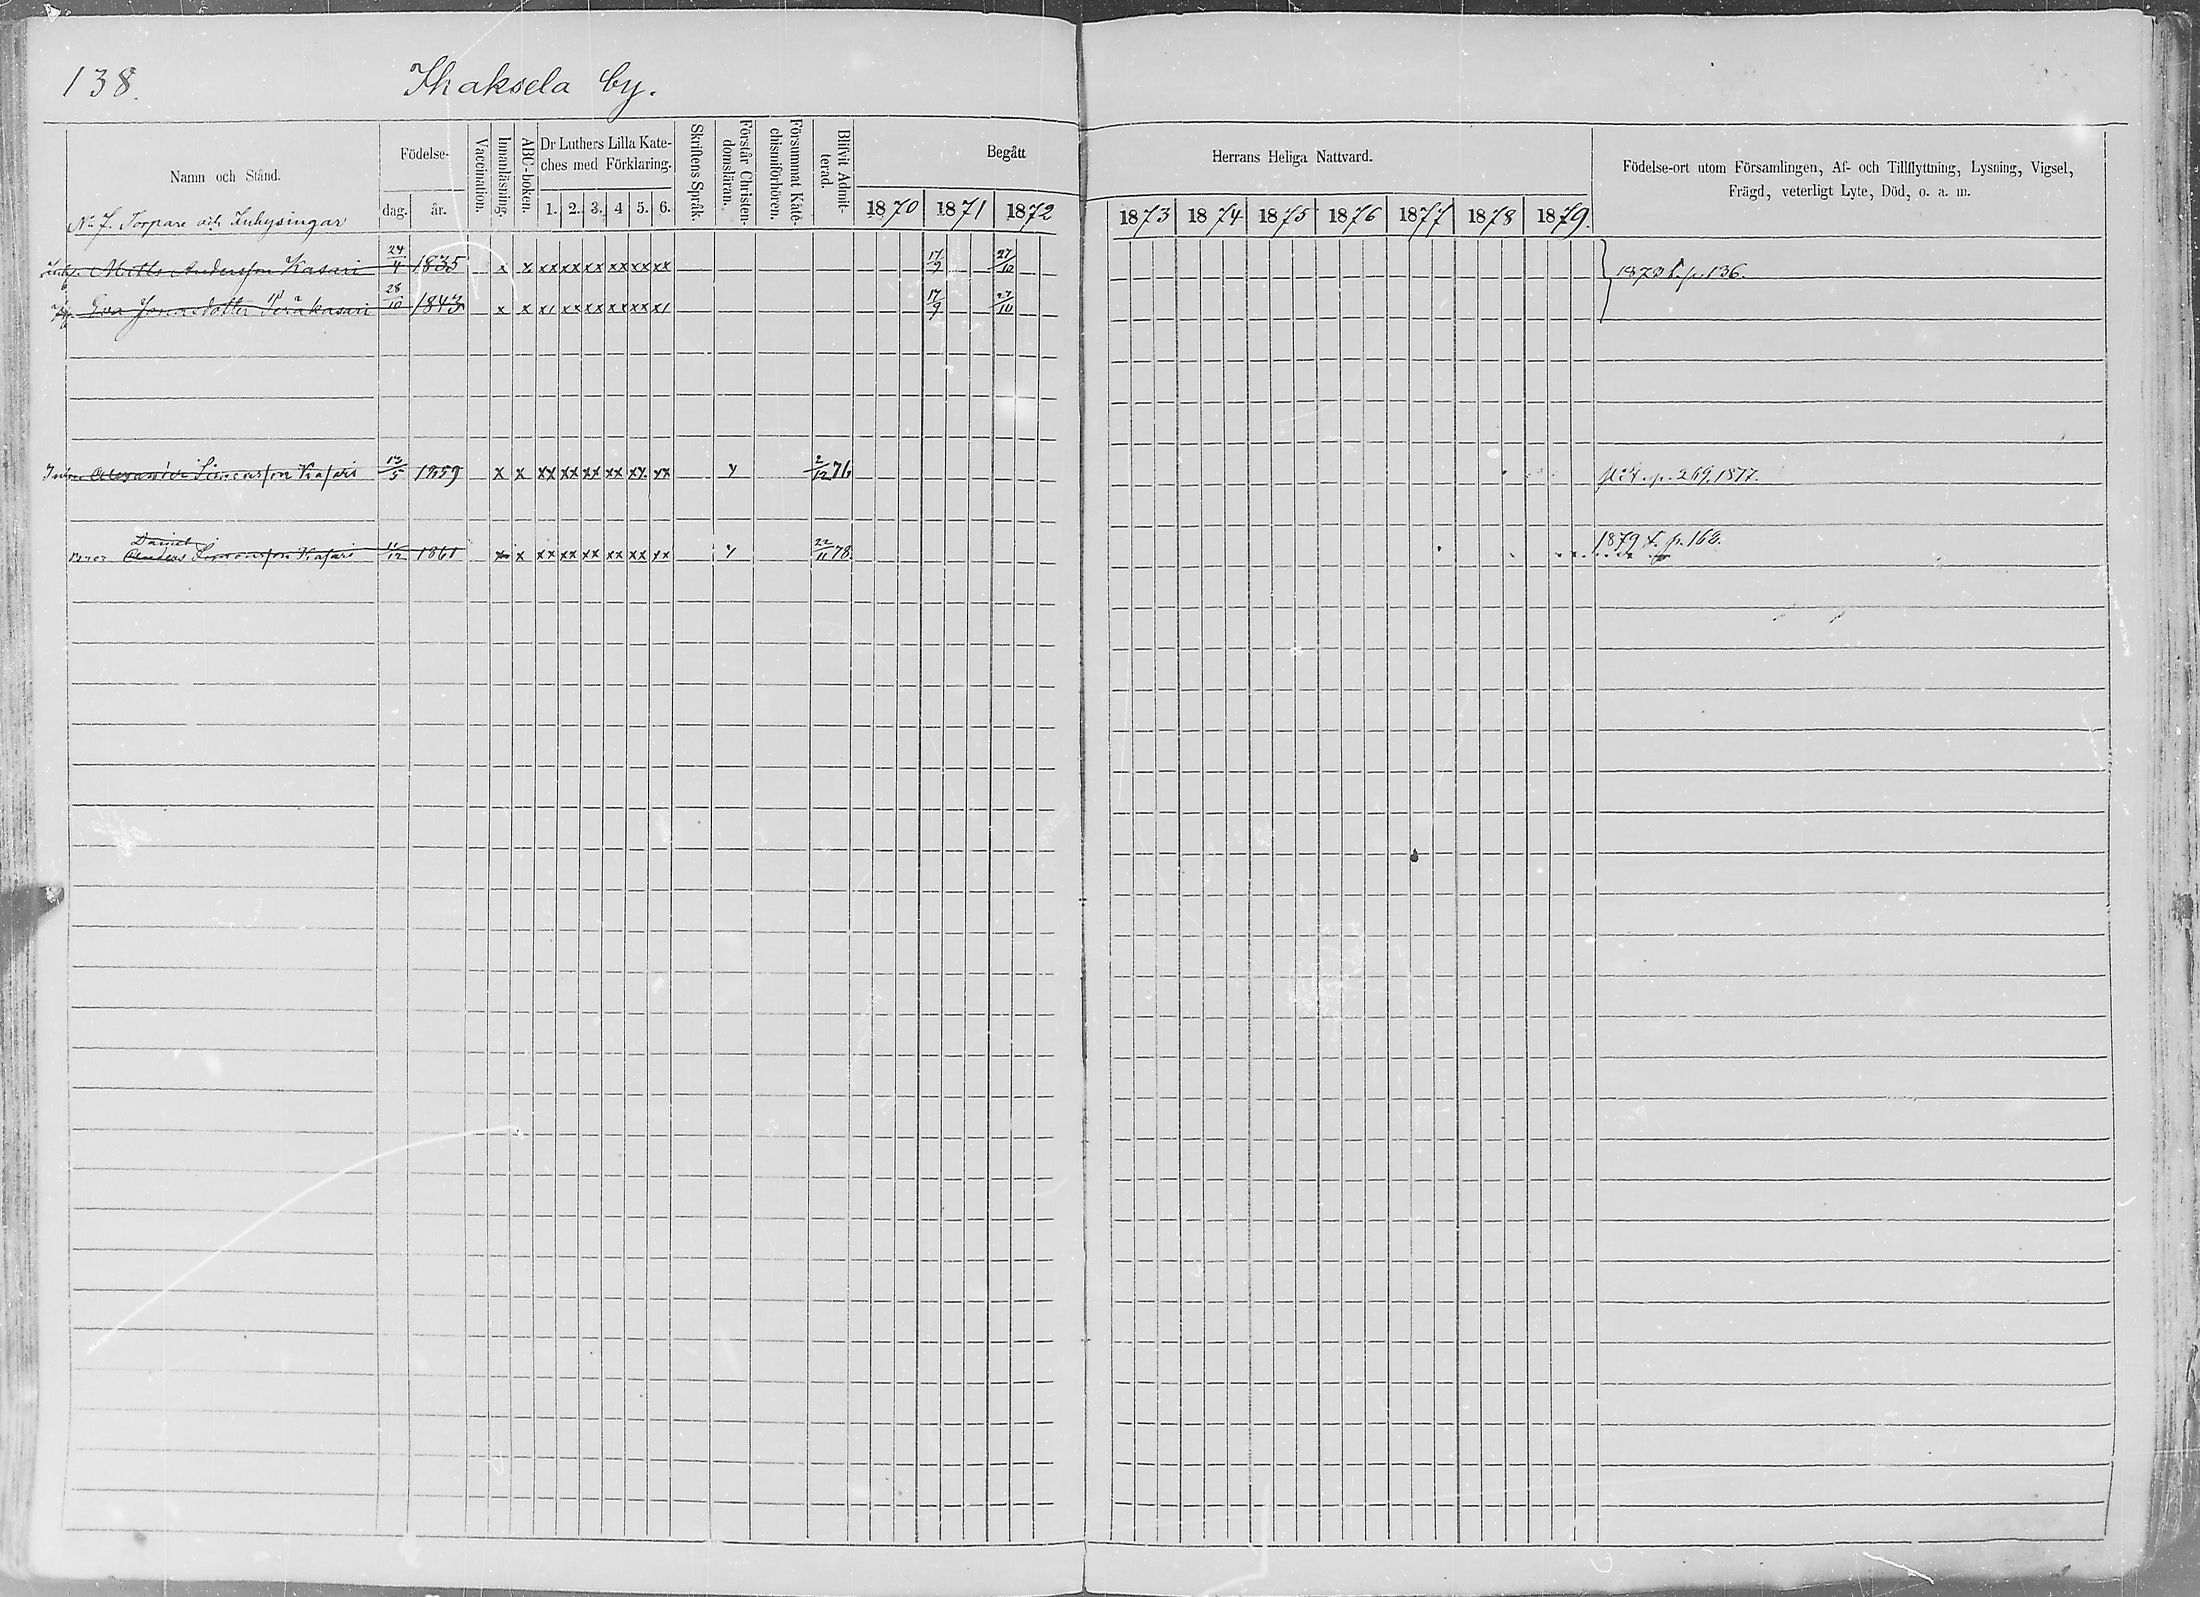 138.
Ihaksela by.
Namn och Stånd.
Födelse-
dag. år.
Vaccination.
Innanläsning.
ABC-boken.
Dr Luthers Lilla Kate-
ches med Förklaring.
1. 2. 3. 4 5. 6.
Skriftens Språk.
Förstår Christen-
domsläran.
Försummat Kate-
chismiförhören.
Blifvit Admit-
terad.
Begått Herrans Heliga Nattvard.
1870 1871 1872 1873 1874 1875 1876 1877 1878 1879.
Födelse-ort utom Församlingen, Af- och Tillflyttning, Lysning, Vigsel,
Frägd, veterligt Lyte, Död, o. a. m.
No 7. Torpare och Inhysingar
Matts Andersson Kasari 24/4 1835 x x xx xx xx xx xx xx 17/9 27/10 1873 p. 136.
Eva Jonasdotter Peräkasari 28/10 1843 x x x/ xx xx xx xx x/ 17/9 27/10
Alexander Simonsson Kasari 13/5 1859 x x xx xx xx xx xx xx y 2/12 76 p. 269. 1877.
Daniel
Bror Anders Simonsson Kasari 11/12 1861 x x xx xx xx xx xx xx y 22/11 78. 1879 p. 168.